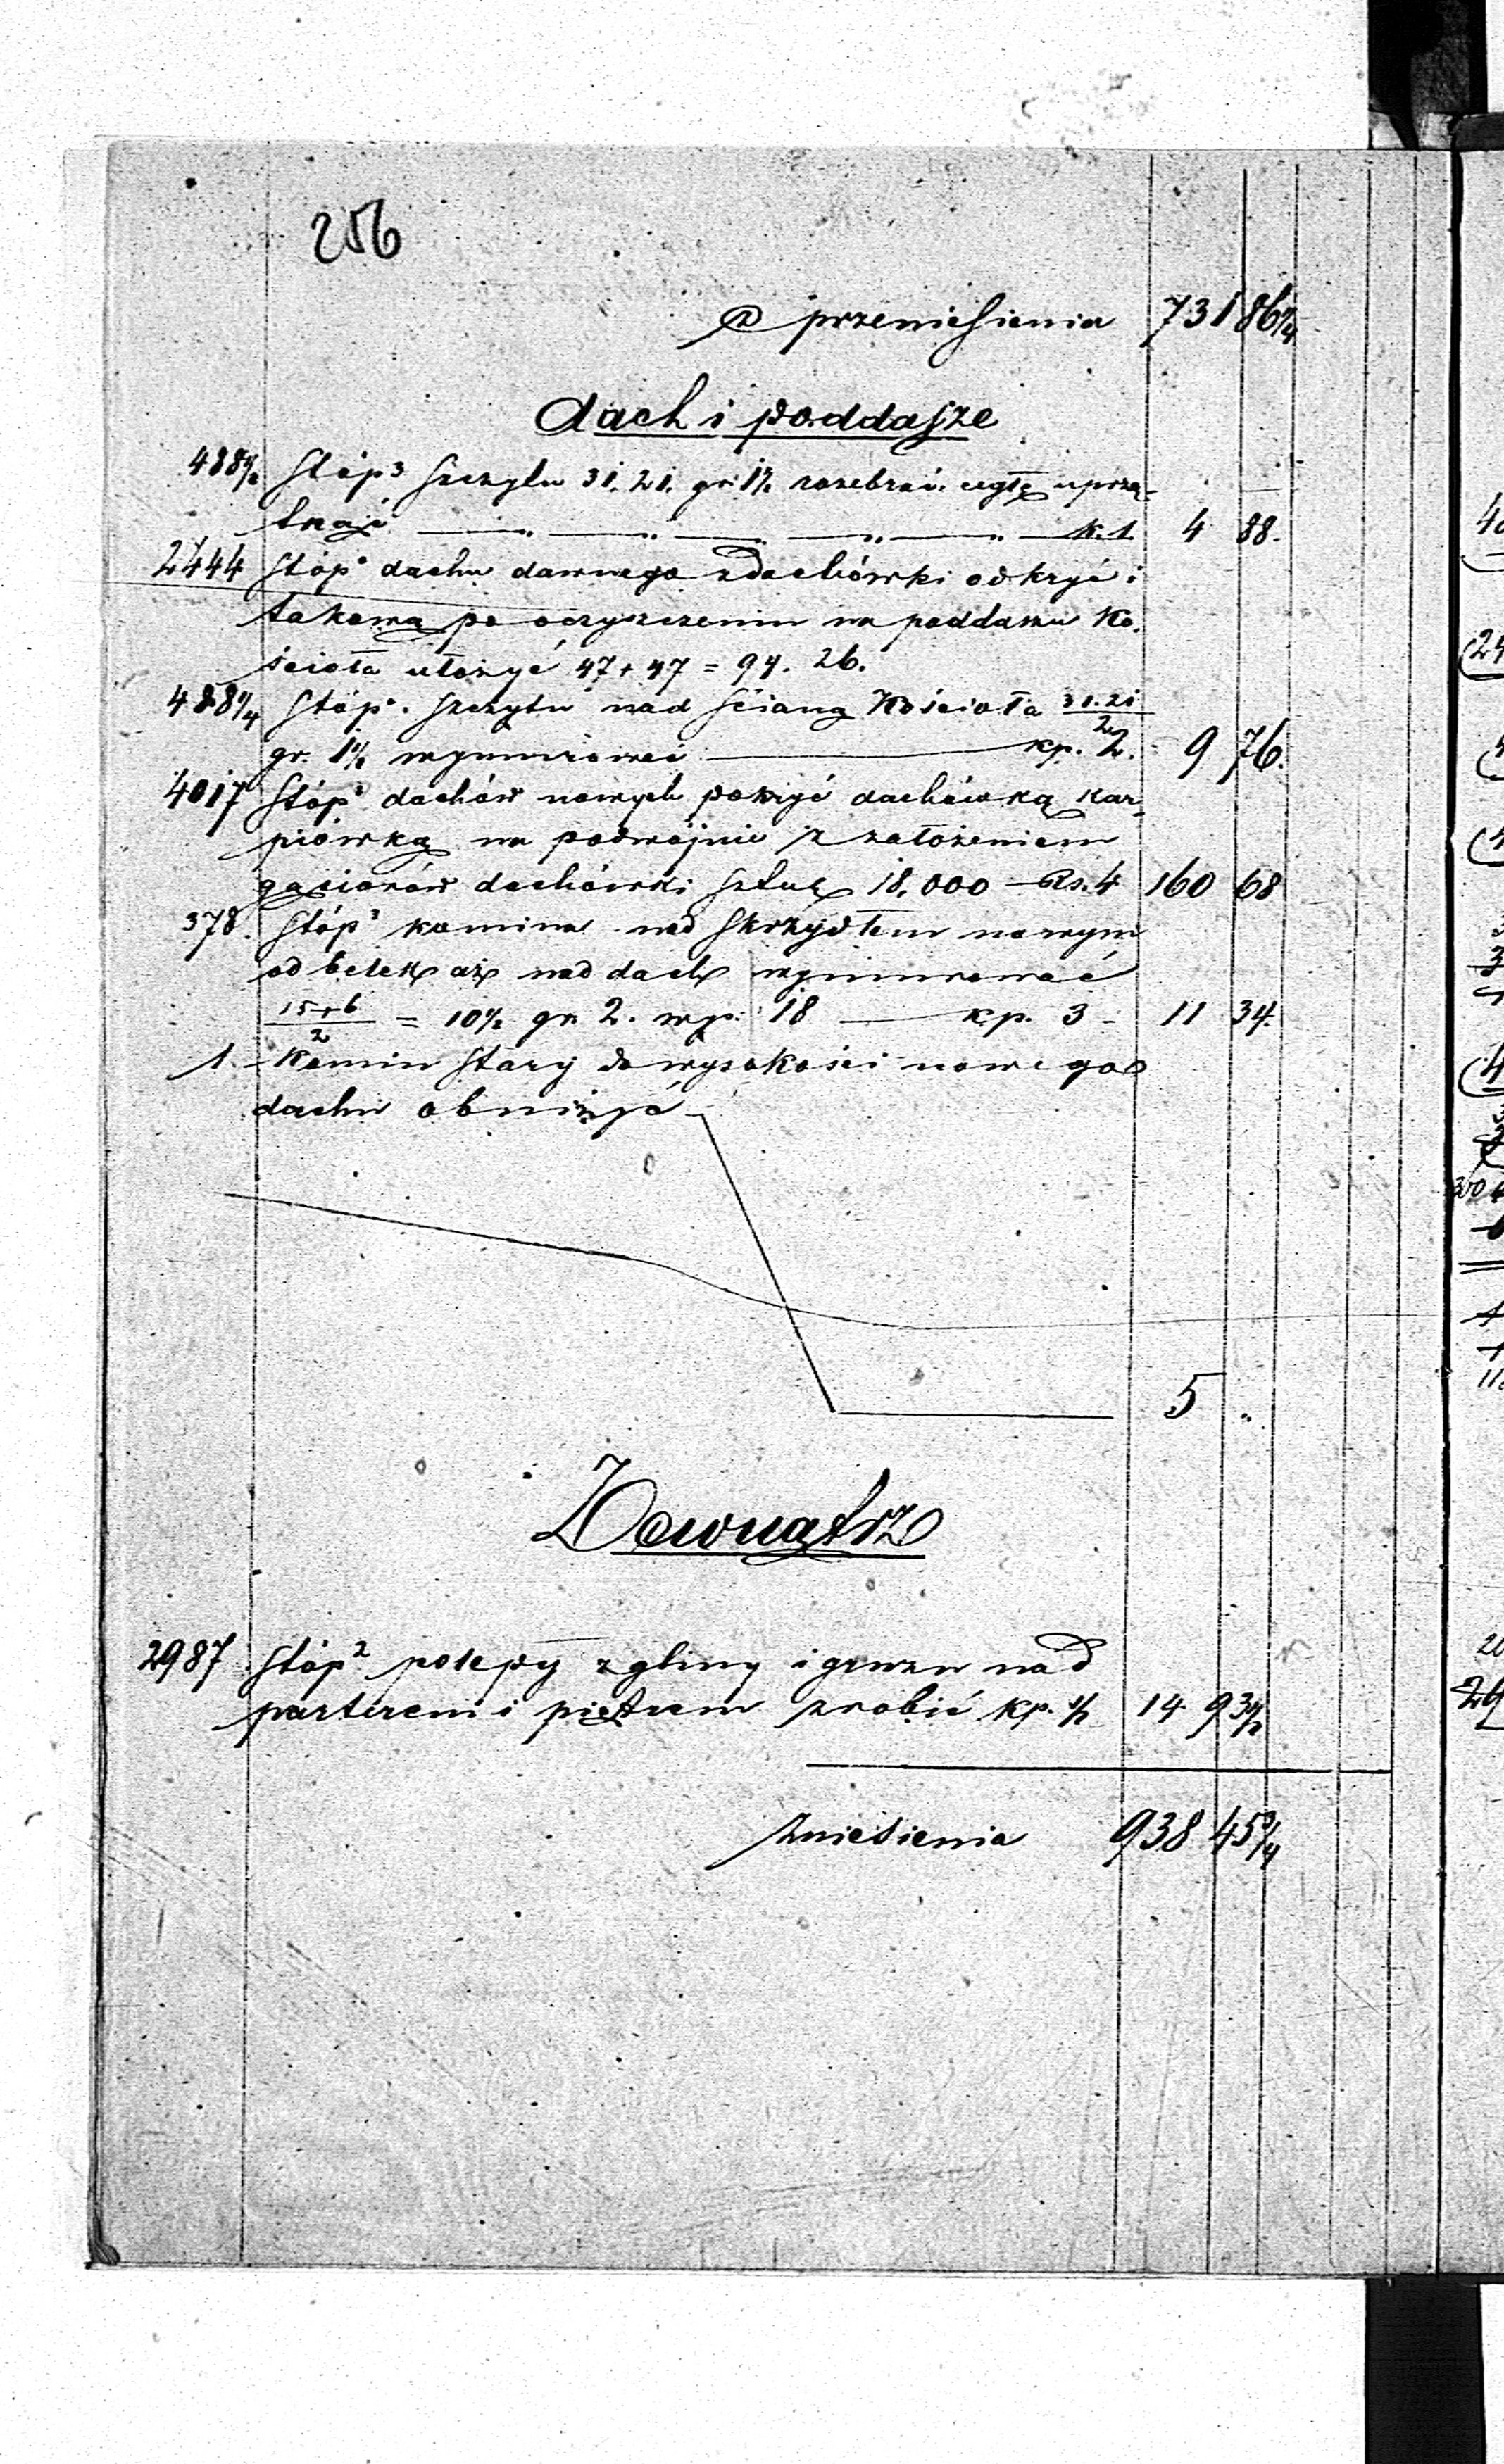 256
Z przeniesienia 731 86 1/4
dach i poddasze
488 1/4 Stóp³ Szczytu 31. 21. gr. 1 1/2 rozebrać. cegłę uprzą-
tnąć „ „ „ „ „ K. 1. 4 88.
2444 Stóp² dachu dawnego z dachówki odkryć i
takową po oczyszczeniu na poddaszu Ko.
ścioła ułożyć 47 + 47 = 94. 26.
488 1/4 Stóp³. Szczytu nad ścianą Kościoła 31.21/2
gr. 1 1/2 wymurować kp. 2. 9 76.
4017 Stóp² dachów nowych pokryć dachówką kar-
piówką na podwójnie z założeniem
gąsiorów dachówki sztuk 18,000 – Rs. 4 160 68
378. Stóp³ komina nad skrzydłem nowym
od belek aż nad dach wymurować
15+6/2 = 10 1/2 gr. 2. wys. 18 kp. 3 – 11 34.
1. Komin stary do wysokości nowego
dachu obniżyć
5 „
Zewnątrz
2987 Stóp² polepy z gliny i gruzu nad
parterem i piętrem zrobić kp. 1/2 14 93 1/2
Zniesienia 938 45 3/4